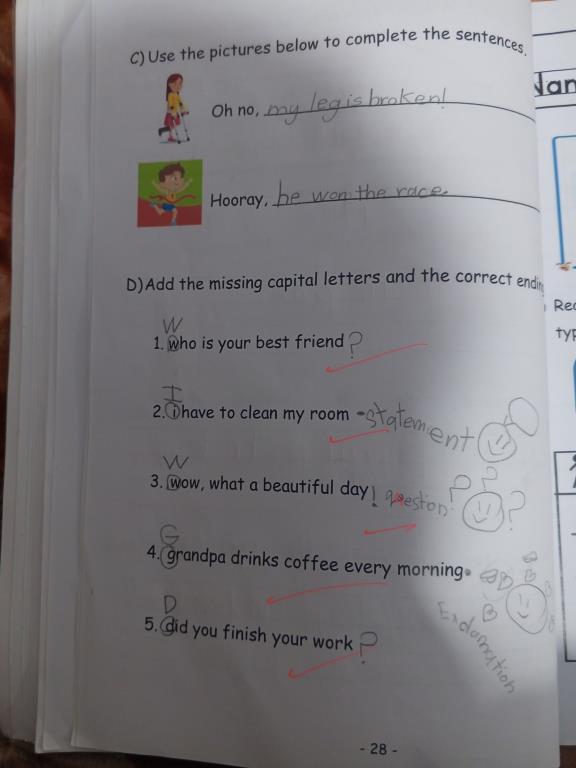 C) Use the pictures below to complete the sentences.
Oh no, my leg is broken!
Hooray, he won the race.
D) Add the missing capital letters and the correct endin
W
1. who is your best friend ?
I
2. i have to clean my room . statement
W
3. wow, what a beautiful day ! question ? ? ?
G
4. grandpa drinks coffee every morning.
Exclamation
D
5. did you finish your work ?
- 28 -
Nam
Rea
typ